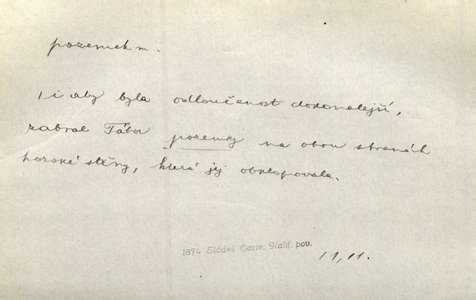 pozemek m.
, i aby byla odloučenost dokonalejší,
zabral Tábor pozemky na obou stranách
horské stěny, která jej obklopovala.
1874 Sládek Harte, Kalif. pov.
11, 11.